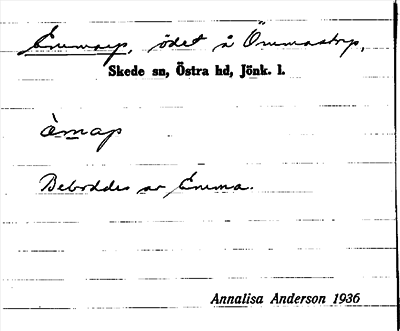 Emmarp, ödet å Ömmastorp,
Skede sn, Östra hd, Jönk. l.
èmap
Beboddes av Emma.
Annalisa Anderson 1936